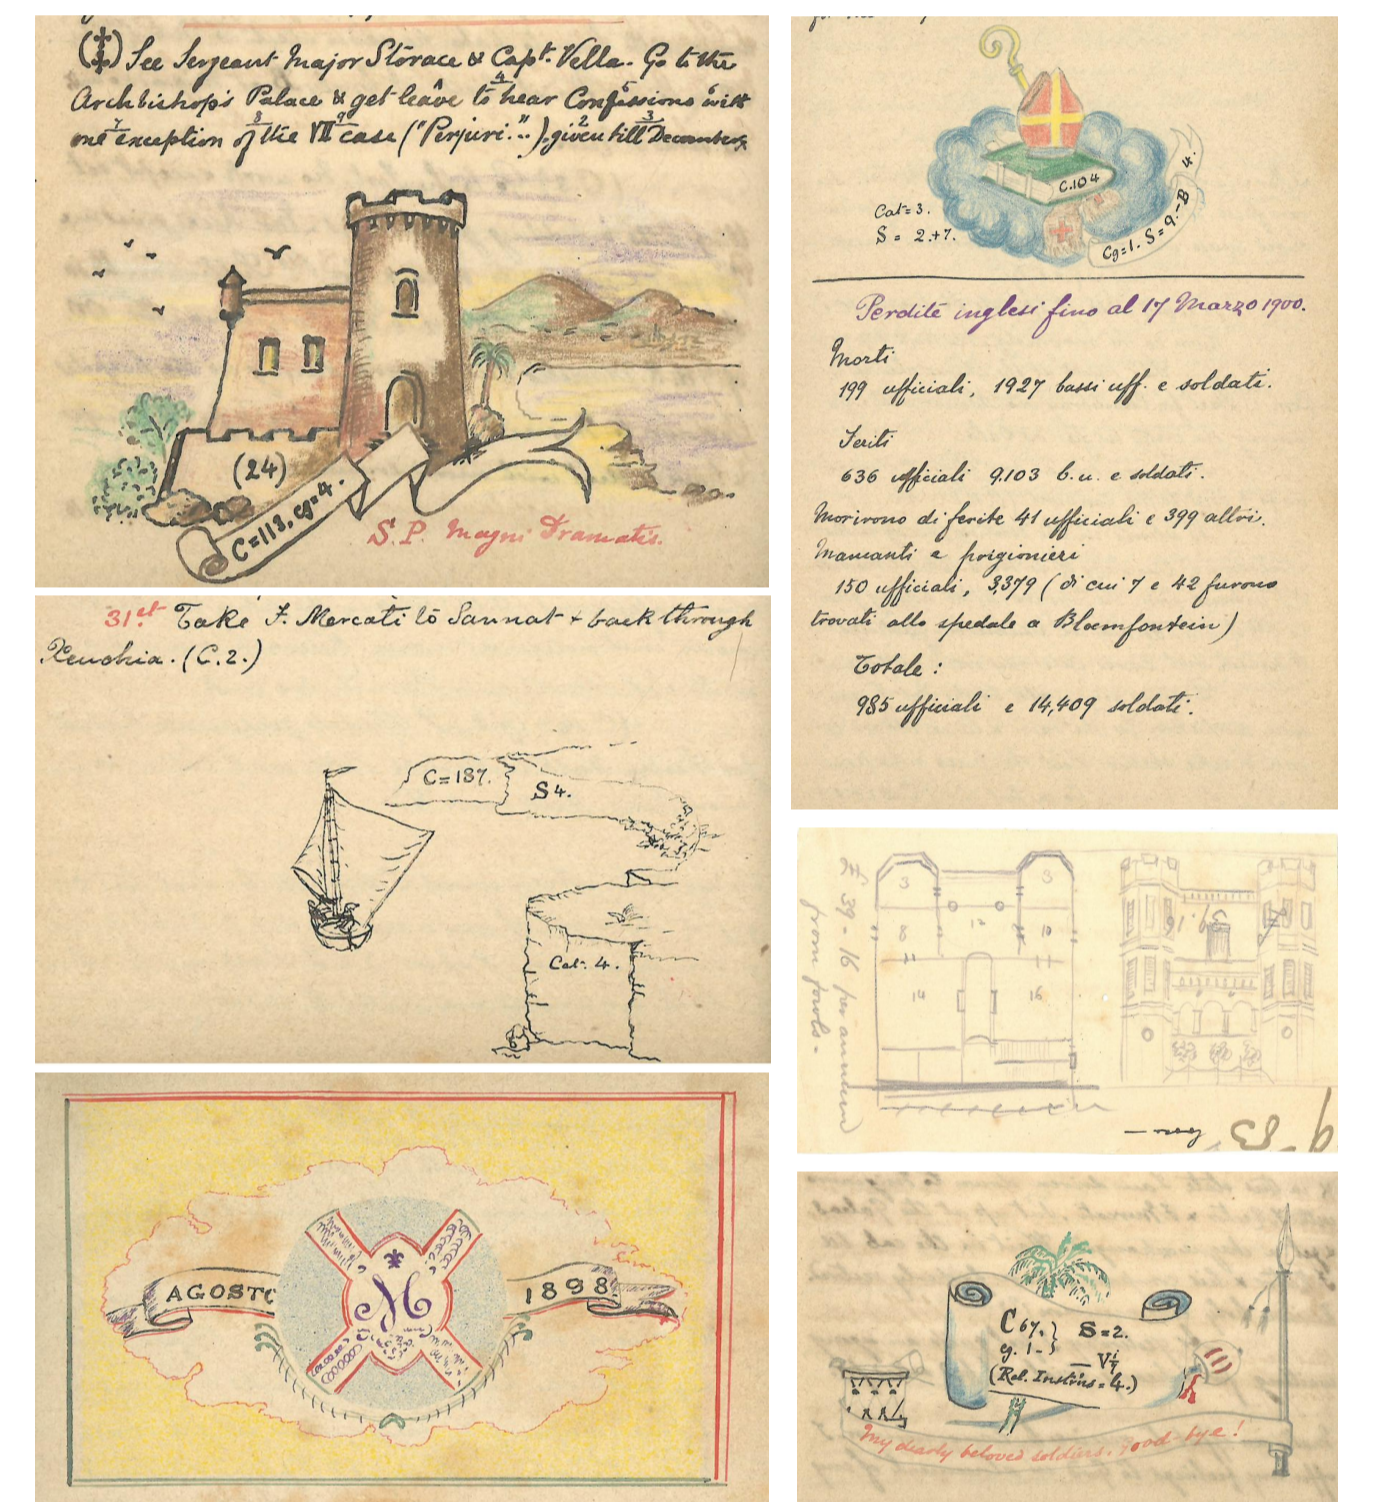 (‡) See Sergeant Major Storace & Capt. Vella. Go to the
Archbishop's Palace & get leave to hear Confessions with
one exception of the VII case ("Perjuri...") given till December.
(24)
C=113, cg=4.
S. P. Magni Dramatis.
31st Take F. Mercati to Sannat + back through
Xeuchia. (C.2.)
C=187.
S 4.
Cat. 4.
AGOSTO
1898
M
C.104
Cat=3.
S = 2.+7.
Cg=1. S=9.-B 4.
Perdite inglesi fino al 17 Marzo 1900.
Morti
199 ufficiali, 1927 bassi uff. e soldati.
Feriti
636 ufficiali 9.103 b.u. e soldati.
Morirono di ferite 41 ufficiali e 399 altri.
Mancanti e prigionieri
150 ufficiali, 3,379 (di cui 7 e 42 furono
trovati allo spedale a Bloemfontein)
Totale:
985 ufficiali e 14,409 soldati.
£ 39-16 per annum
from fowls-
3 3
8 12 10
16
C 67. } S=2.
cg. 1-
(Rel. Instrns=4.)
My dearly beloved soldiers, good-bye!